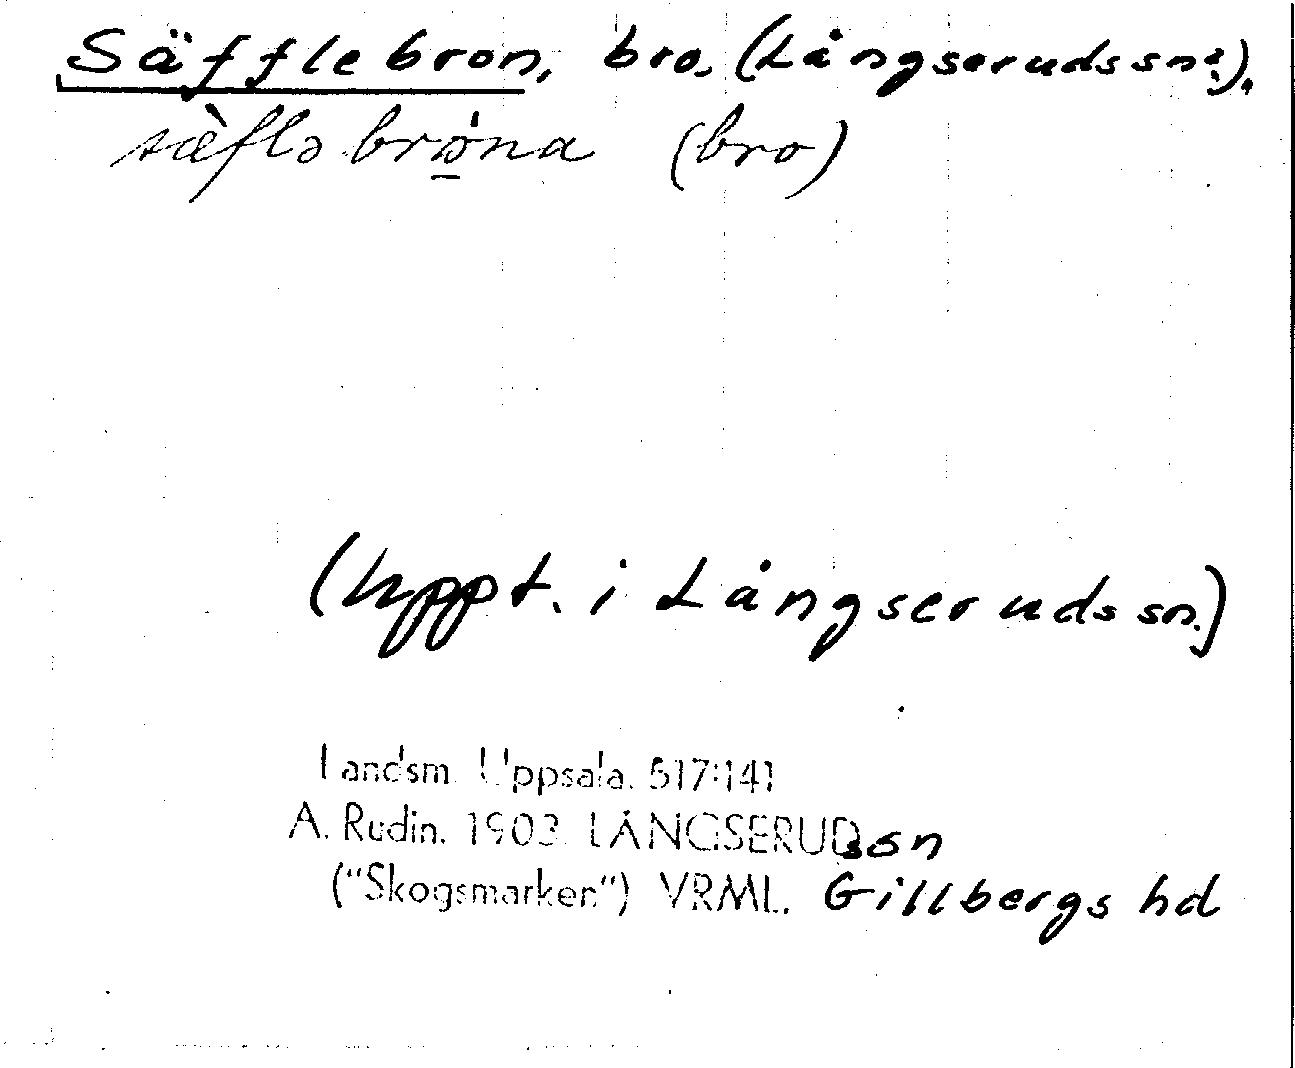 Säfflebron, bro, (Långseruds sn?).
sæ̀flə brǫ́na (bro)
(Uppt. i Långseruds sn.)
Landsm. Uppsala. 517:141
A. Rudin. 1903. LÅNGSERUDs sn
("Skogsmarken") VRML. Gillbergs hd